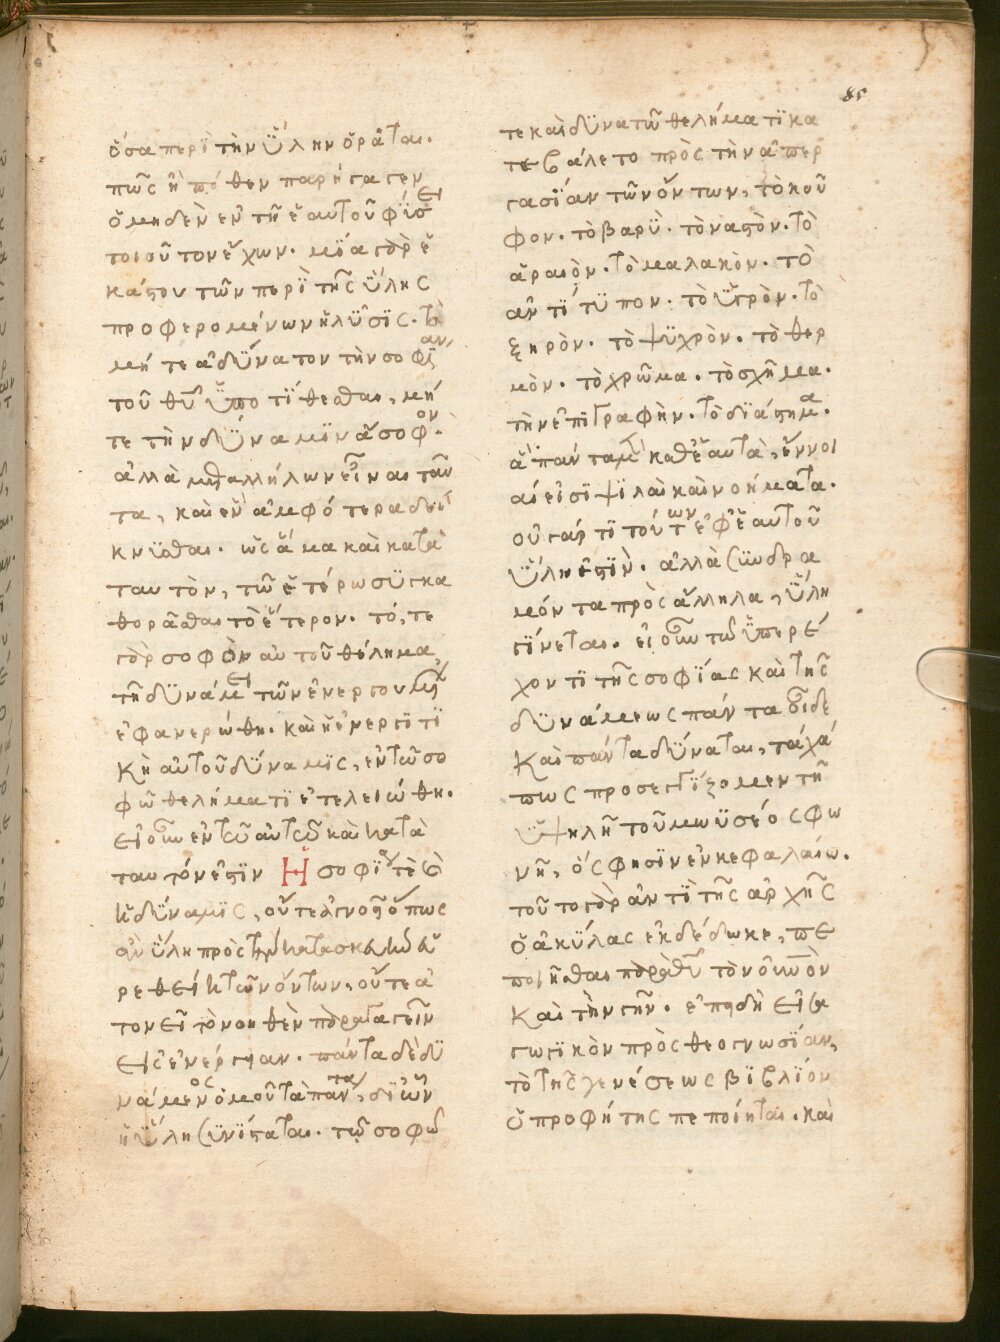 85
ὅσα περὶ τὴν ὕλην ὁρᾶται.
πῶς ἢ πόθεν παρήγαγεν
ὁ μηδὲν ἐν τῇ ἑαυτοῦ φύσει
τοιοῦτον ἔχων. μία γὰρ ἔ
κάστου τῶν περὶ τῆς ὕλης
προφερομένων ἡ λύσις. τὸ
μήτε ἀδύνατον τὴν σοφίαν
τοῦ θῦ ὑποτίθεσθαι, μή
τε τὴν δύναμιν ἄσοφον.
ἀλλὰ μετ᾽ ἀλλήλων εἶναι ταῦ
τα, καὶ ἓν ἀμφότερα δεί
κνυσθαι. ὡς ἅμα καὶ κατὰ
ταυτὸν, τῷ ἑτέρω συγκα
θορᾶσθαι τὸ ἕτερον. τό, τε
γὰρ σοφὸν αὐτοῦ θέλημα,
τῇ δυνάμει τῶν ἐνεργουμένων
ἐφανερώθη. καὶ ἡ ἐνεργητι
κὴ αὐτοῦ δύναμις, ἐν τῶ σο
φῶ θελήματι ἐτελειώθη.
εἰ οὖν ἐν τῶ αὐτῶ καὶ κατὰ
ταυτόν ἐστιν Ἡ σοφία τὲ καὶ
ἡ δύναμις, οὔτε ἀγνοεῖ ὅπως
ἂν ὕλη πρὸς τὴν κατασκευὴν εὑ
ρεθείη τῶν ὄντων, οὔτε ἀ
τονεῖ τὸ νοηθὲν παραγαγεῖν
εἰς ἐνέργειαν. πάντα δὲ δυ
νάμενος ὁμοῦ τὰ πάντα, δι ὧν
ἡ ὕλη συνίσταται. τῷ σοφῶ
τε καὶ δυνατῶ θελήματι κα
τεβάλετο πρὸς τὴν ἀπερ
γασίαν τῶν ὄντων, τὸ κοῦ
φον. τὸ βαρὺ. τὸ ναστὸν. τὸ
ἀραιὸν. τὸ μαλακὸν. τὸ
ἀντίτυπον. τὸ ὑγρὸν. τὸ
ξηρὸν. τὸ ψυχρὸν. τὸ θερ
μὸν. τὸ χρῶμα. τὸ σχῆμα.
τὴν ἐπιγραφὴν. τὸ διάστημα.
ἅπαντα μὲν καθ᾽ ἑαυτὰ, ἔννοι
αί εἰσι ψιλαὶ καὶ νοήματα.
οὐ γάρ τι τούτων ἐφ᾽ ἑαυτοῦ
ὕλη ἐστὶν. ἀλλὰ συνδρα
μόντα πρὸς ἄλληλα, ὕλη
γίνεται. εἰ οὖν τῶ ὑπερέ
χοντι τῆς σοφίας καὶ τῆς
δυνάμεως πάντα οἶδε
καὶ πάντα δύναται, τάχά
πως προσεγγίζομεν τῆ
ὑψηλῆ τοῦ μωϋσέος φω
νῆ, ός φησιν ἐν κεφαλαίω.
τοῦτο γὰρ ἀντὶ τῆς ἀρχῆς
ὁ ἀκύλας ἐκδέδωκε, πε
ποιῆσθαι παρὰ θῦ τὸν οὐνὸν
καὶ τὴν γῆν. ἐπειδὴ εἰσα
γωγικὸν πρὸς θεογνωσίαν,
τὸ τῆς γενέσεως βιβλίον
ὁ προφήτης πεποίηται. καὶ